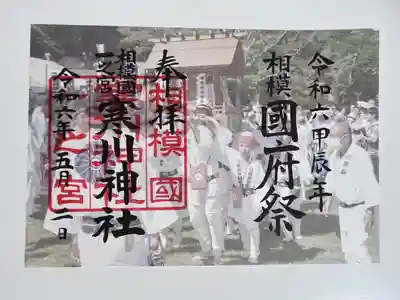 令和六甲辰年
相模國府祭
奉拝
相模國
一之宮
寒川神社
令和六年五月二日
相模國
一之宮